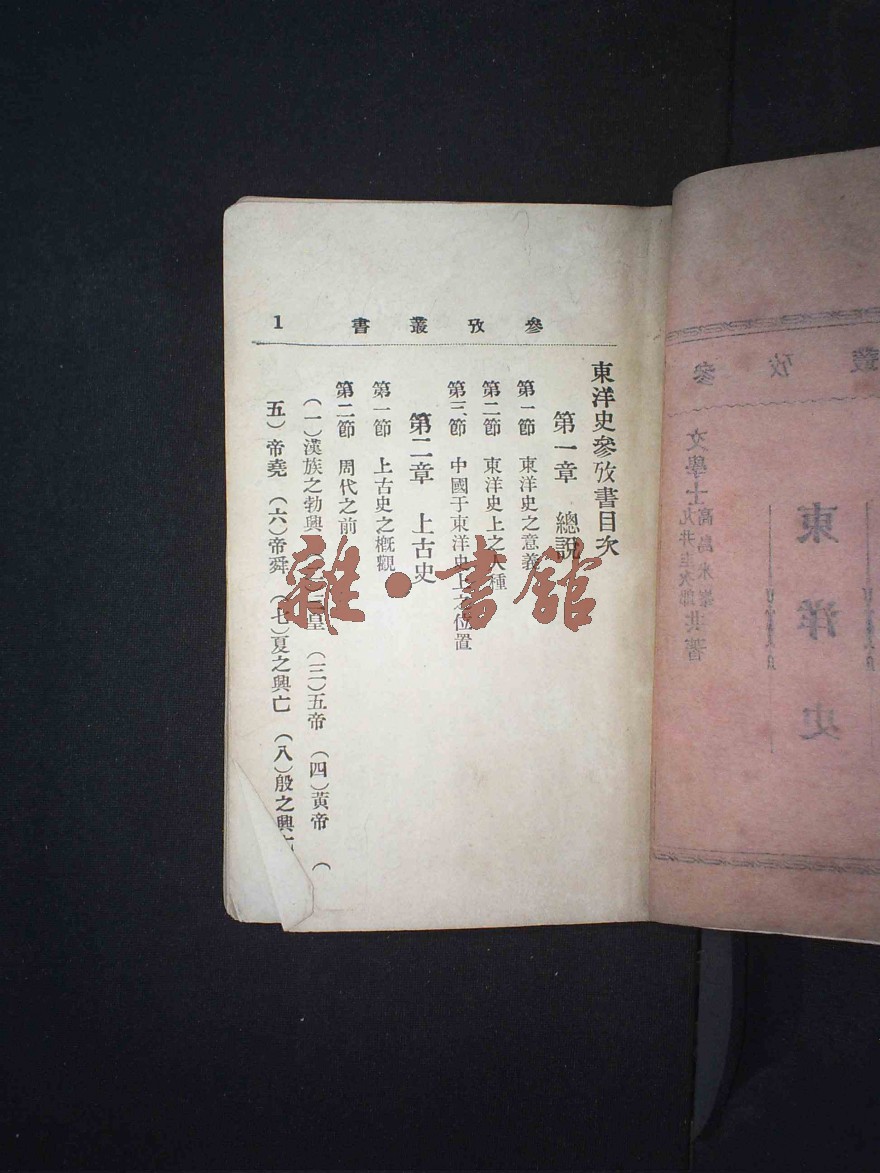 參攷叢書 1
東洋史參攷書目次
第一章 總說
第一節 東洋史之意義
第二節 東洋史上之人種
第三節 中國于東洋史上之位置
第二章 上古史
第一節 上古史之概觀
第二節 周代之前
(一)漢族之勃興 皇 (三)五帝 (四)黃帝 (
五)帝堯 (六)帝舜 (七)夏之興亡 (八)殷之興
雜·書館
參攷叢
東洋史
文學士
共著